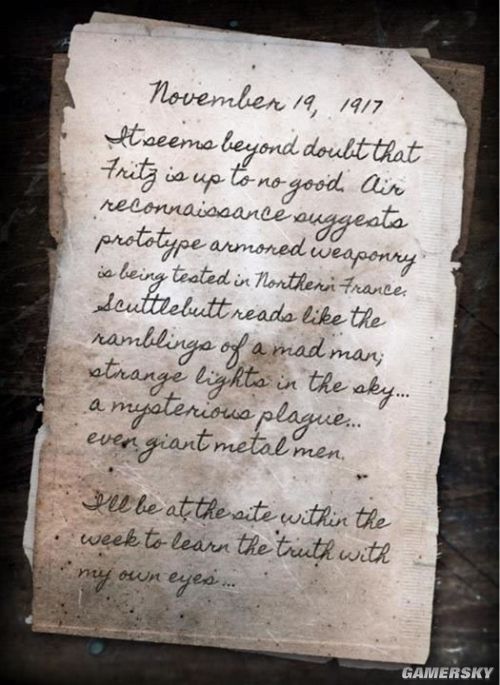 November 19, 1917
It seems beyond doubt that
Fritz is up to no good. Air
reconnaissance suggests
prototype armored weaponry
is being tested in Northern France.
Scuttlebutt reads like the
ramblings of a mad man;
strange lights in the sky...
a mysterious plague...
even giant metal men.
I'll be at the site within the
week to learn the truth with
my own eyes...
GAMERSKY